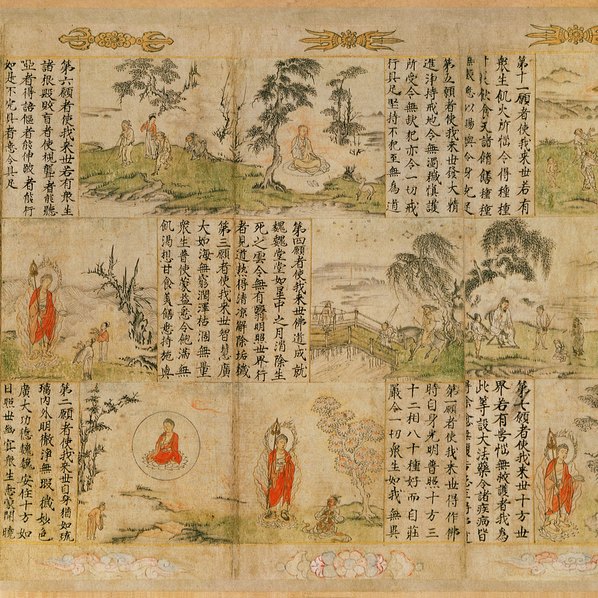 第十一願者使我来世若有
衆生飢火所惱令得種種
飲食又諸餚饍種種
悉以賜與令身充足
第五願者使我来世發大精
進淨持戒地令無濁穢慎護
所受令無缺犯亦令一切戒
行具足堅持不犯至無為道
第六願者使我来世若有衆生
諸根毀敗盲者使視聾者能聽
瘂者得語僂者能伸跛者能行
如是不完具者悉令具足
第四願者使我来世佛道成就
巍巍堂堂如星中之月消除生
死之雲令無有翳明照世界行
者見道熱得清涼解除垢穢
第三願者使我来世智慧廣
大如海無窮潤澤枯涸無量
衆生普使蒙益悉令飽滿無
飢渴想甘食美饍悉持施與
第七願者使我来世十方世
界若有苦惱無救護者我為
此等設大法藥令諸疾病皆
得除愈無復苦患至得佛道
第一願者使我来世得作佛
時自身光明普照十方三
十二相八十種好而自莊
嚴令一切衆生如我無異
第二願者使我来世自身猶如琉
璃内外明徹淨無瑕穢妙色
廣大功德巍巍安住十方如
日照世幽冥衆生悉蒙開曉